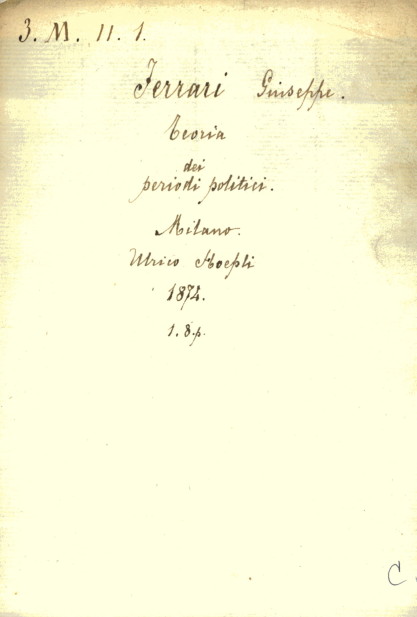 3. M. 11. 1.
Ferrari Giuseppe.
Teoria
dei
periodi politici.
Milano.
Ulrico Hoepli
1874.
1. 8. p.
C.